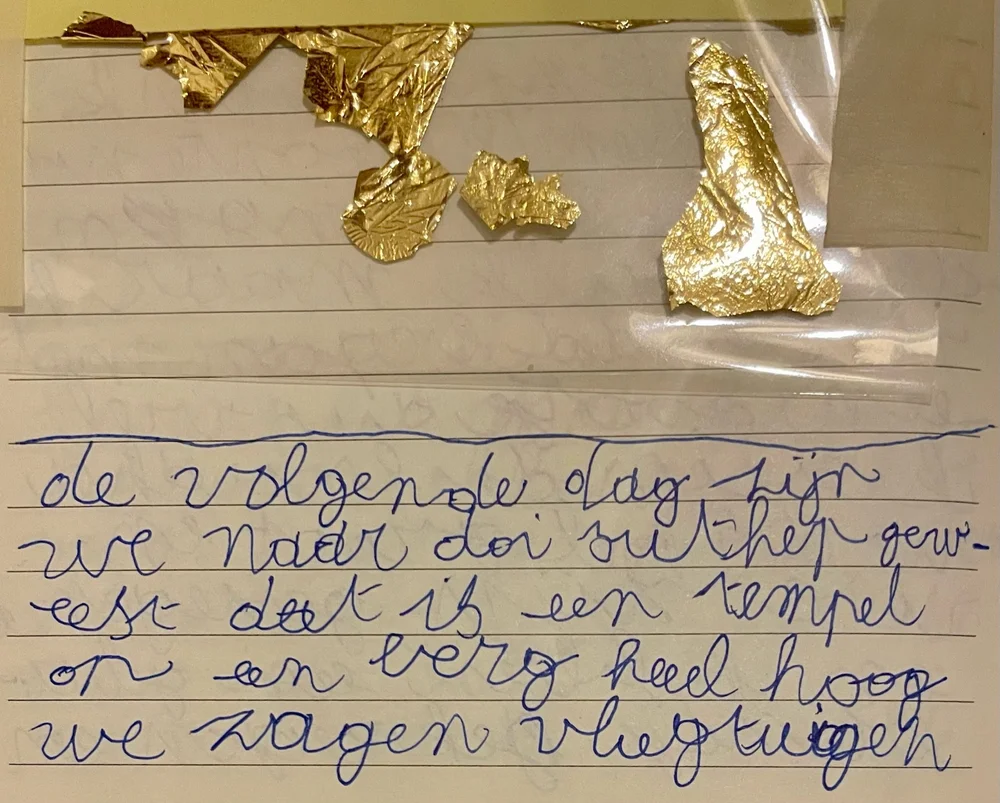 de volgende dag zijn
we naar doi suthep gew-
eest dat is een tempel
op een berg heel hoog
we zagen vliegtuigen